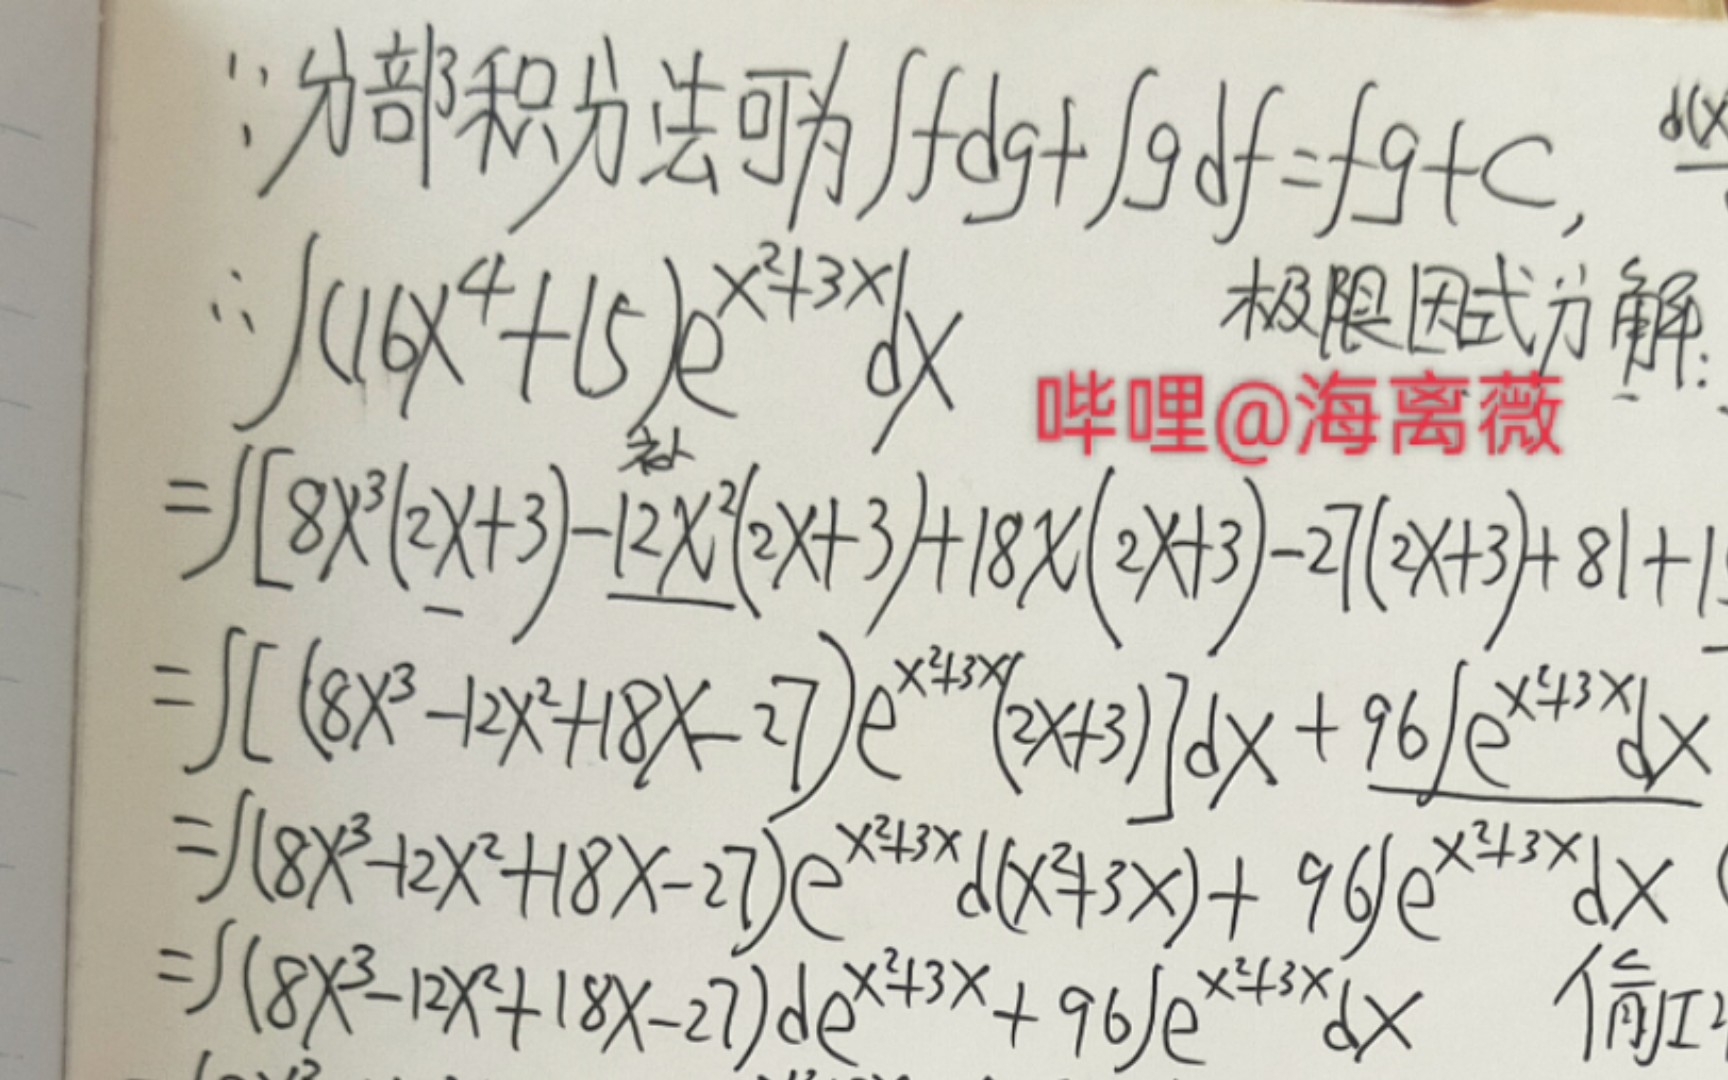 ∵分部积分法可为∫fdg+∫gdf=fg+C, d(x
∴∫(16x⁴+15)e^{x²+3x}dx 极限因式分解:
哔哩@海离薇
补
=∫[8x³(2x+3)-12x²(2x+3)+18x(2x+3)-27(2x+3)+81+1
=∫[(8x³-12x²+18x-27)e^{x²+3x}(2x+3)]dx+96∫e^{x²+3x}dx
=∫(8x³-12x²+18x-27)e^{x²+3x}d(x²+3x)+96∫e^{x²+3x}dx (
=∫(8x³-12x²+18x-27)de^{x²+3x}+96∫e^{x²+3x}dx 偷工